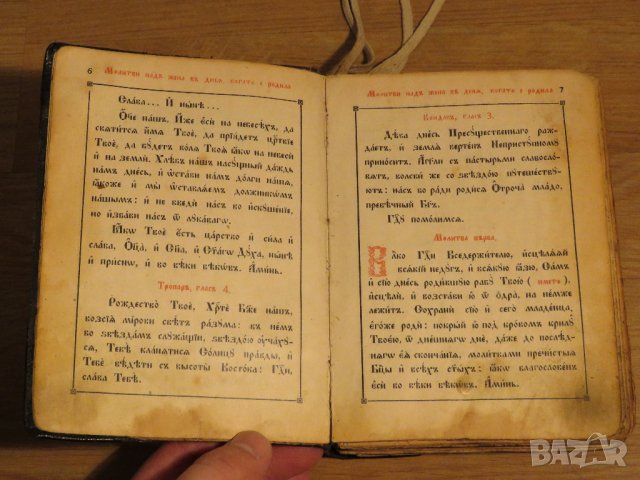 6
Молитви надъ жена въ деня, когато е родила
Сла́ва... И҆ ны́нѣ...
Ѻ҆́че на́шъ, И҆́же є҆сѝ на небесѣ́хъ, да
свѧти́тсѧ и҆́мѧ Твоѐ, да прїи́детъ ца́рствїе
Твоѐ, да бꙋ́детъ во́лѧ Твоѧ̀ ꙗ҆́кѡ на небесѝ
и҆ на землѝ. Хлѣ́бъ на́шъ насꙋ́щный да́ждь
на́мъ дне́сь, и҆ ѡ҆ста́ви на́мъ до́лги на́шѧ,
ꙗ҆́коже и҆ мы̀ ѡ҆ставлѧ́емъ должникѡ́мъ
на́шымъ: и҆ не введѝ на́съ во и҆скꙋше́нїе,
но и҆зба́ви на́съ ѿ лꙋка́вагѡ.
Ꙗ҆́кѡ Твоѐ є҆́сть ца́рство и҆ си́ла и҆
сла́ва, Ѻ҆ц҃а̀, и҆ Сн҃а, и҆ Ст҃а́гѡ Дꙋ́ха, ны́нѣ
и҆ при́снѡ, и҆ во вѣ́ки вѣкѡ́въ. А҆ми́нь.
Тропаръ, гласъ 4.
Рождество̀ Твоѐ, Хрⷭ҇тѐ Бж҃е на́шъ,
возсїѧ̀ мі́рови свѣ́тъ ра́зꙋма: въ не́мъ
во ѕвѣзда́мъ слꙋжа́щїи, ѕвѣздо́ю ᲂу҆ча́хꙋ-
сѧ, Тебѣ̀ кла́нѧтисѧ Со́лнцꙋ пра́вды, и҆
Тебѐ вѣ́дѣти съ высоты̀ Восто́ка: Гдⷭ҇и,
сла́ва Тебѣ̀.
Молитви надъ жена въ деня, когато е родила
7
Кондакъ, гласъ 3.
Дѣ́ва дне́сь Пресꙋ́щественнаго раж-
да́етъ, и҆ землѧ̀ верте́пъ Непристꙋ́пномꙋ
прино́ситъ. А҆́гг҃ли съ па́стырьми славосло́-
вѧтъ, волсви́ же со ѕвѣздо́ю пꙋтеше́ствꙋ-
ютъ: на́съ бо ра́ди роди́сѧ Ѻ҆троча̀ мла́до,
превѣ́чный Бг҃ъ.
Гдⷭ҇ꙋ помо́лимсѧ.
Молитва първа,
Влⷣко Гдⷭ҇и Вседержи́телю, и҆сцѣлѧ́ѧй
всѧ́кїй недꙋ́гъ, и҆ всѧ́кꙋю ꙗ҆́зю, Са́мъ
и҆ сїю̀ дне́сь роди́вшꙋю рабꙋ̀ Твою̀ (името)
и҆сцѣлѝ, и҆ возста́ви ю҆̀ ѿ ѻ҆дра̀, на не́мже
лежи́тъ. Сохранѝ сїю̀ и҆ сего̀ младе́нца,
є҆го́же родѝ: покры́й ю҆̀ под кро́вомъ кри́лꙋ
Твоє́ю, ѿ дне́шнагѡ днѐ, да́же до послѣ́д-
нѧгѡ є҆ѧ̀ сконча́нїѧ, моли́твами пречи́стыѧ
Бц҃ы и҆ всѣ́хъ ст҃ы́хъ: ꙗ҆́кѡ благослове́нъ
є҆сѝ во вѣ́ки вѣкѡ́въ. А҆ми́нь.
BAZAR
bg